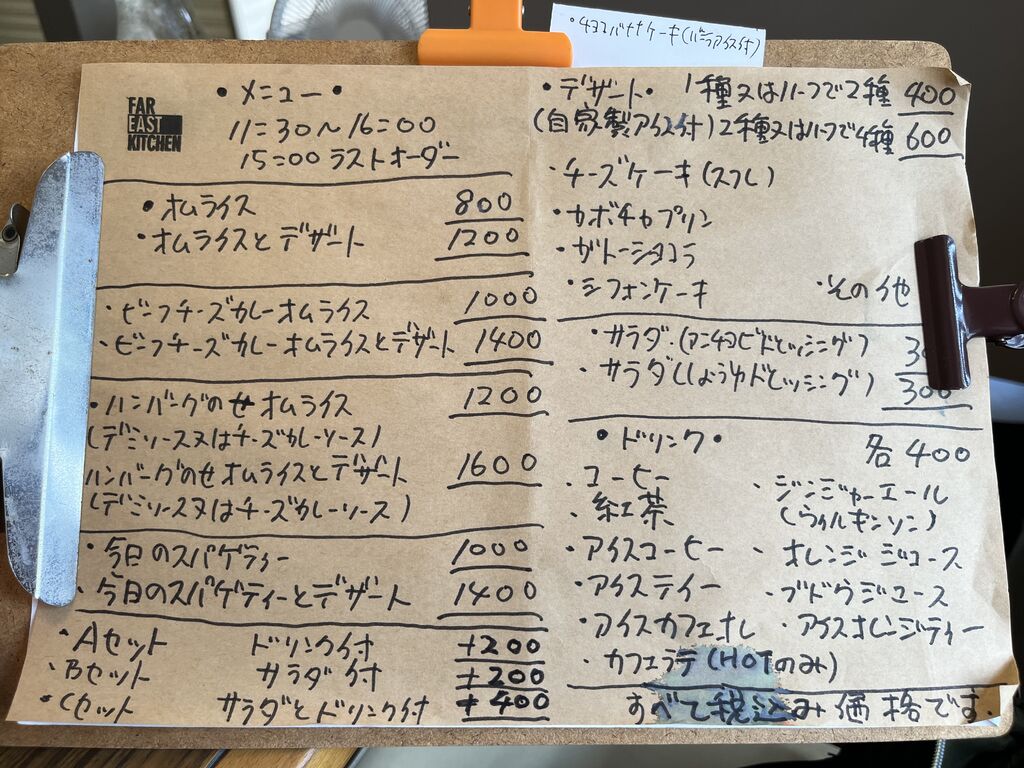 ・チョコバナナケーキ(バニラアイス付)
FAR
EAST
KITCHEN
・メニュー・
11:30〜16:00
15:00 ラストオーダー
・オムライス 800
・オムライスとデザート 1200
・ビーフチーズカレーオムライス 1000
・ビーフチーズカレーオムライスとデザート 1400
・ハンバーグのせオムライス 1200
(デミソース又はチーズカレーソース)
ハンバーグのせオムライスとデザート 1600
(デミソース又はチーズカレーソース)
・今日のスパゲティー 1000
・今日のスパゲティーとデザート 1400
・Aセット ドリンク付 +200
・Bセット サラダ付 +200
・Cセット サラダとドリンク付 +400
・デザート・ 1種又はハーフで2種 400
(自家製アイス付) 2種又はハーフで4種 600
・チーズケーキ(スフレ)
・カボチャプリン
・ガトーショコラ
・シフォンケーキ ・その他
・サラダ(アンチョビドレッシング)
・サラダ(しょうゆドレッシング) 300
・ドリンク・ 各400
・コーヒー ・ジンジャーエール
・紅茶 (ウィルキンソン)
・アイスコーヒー ・オレンジジュース
・アイスティー ・ブドウジュース
・アイスカフェオレ ・アイスオレンジティー
・カフェラテ(HOTのみ)
すべて税込み価格です。